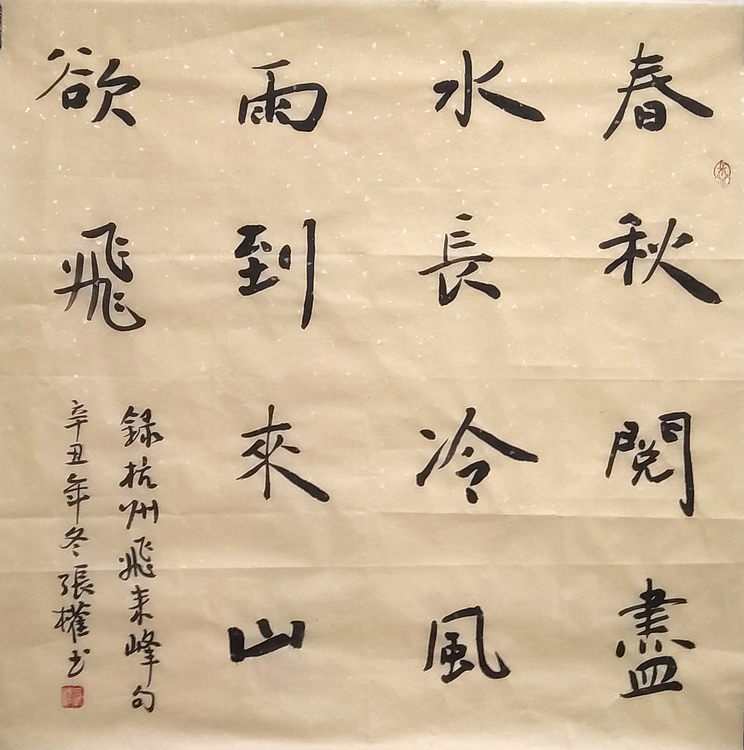 春秋閱盡
水長冷風
雨到來山
欲飛
録杭州飛来峰句
辛丑年冬張權书